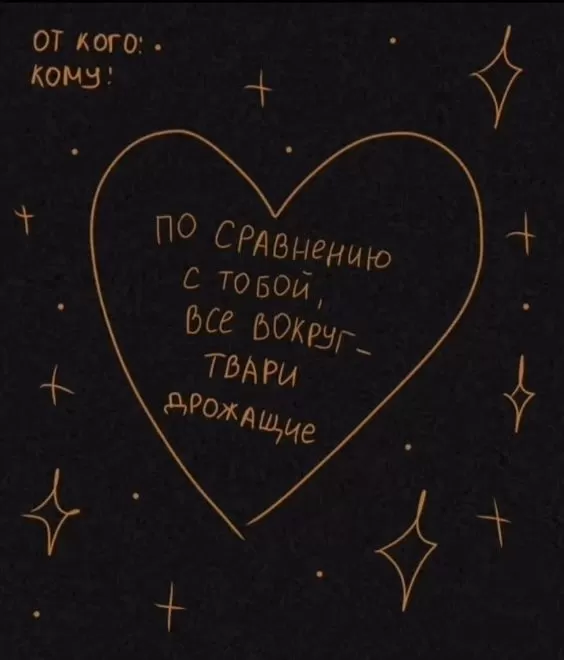 ОТ КОГО:
КОМУ:
ПО СРАВНЕНИЮ
С ТОБОЙ,
ВСЕ ВОКРУГ-
ТВАРИ
ДРОЖАЩИЕ